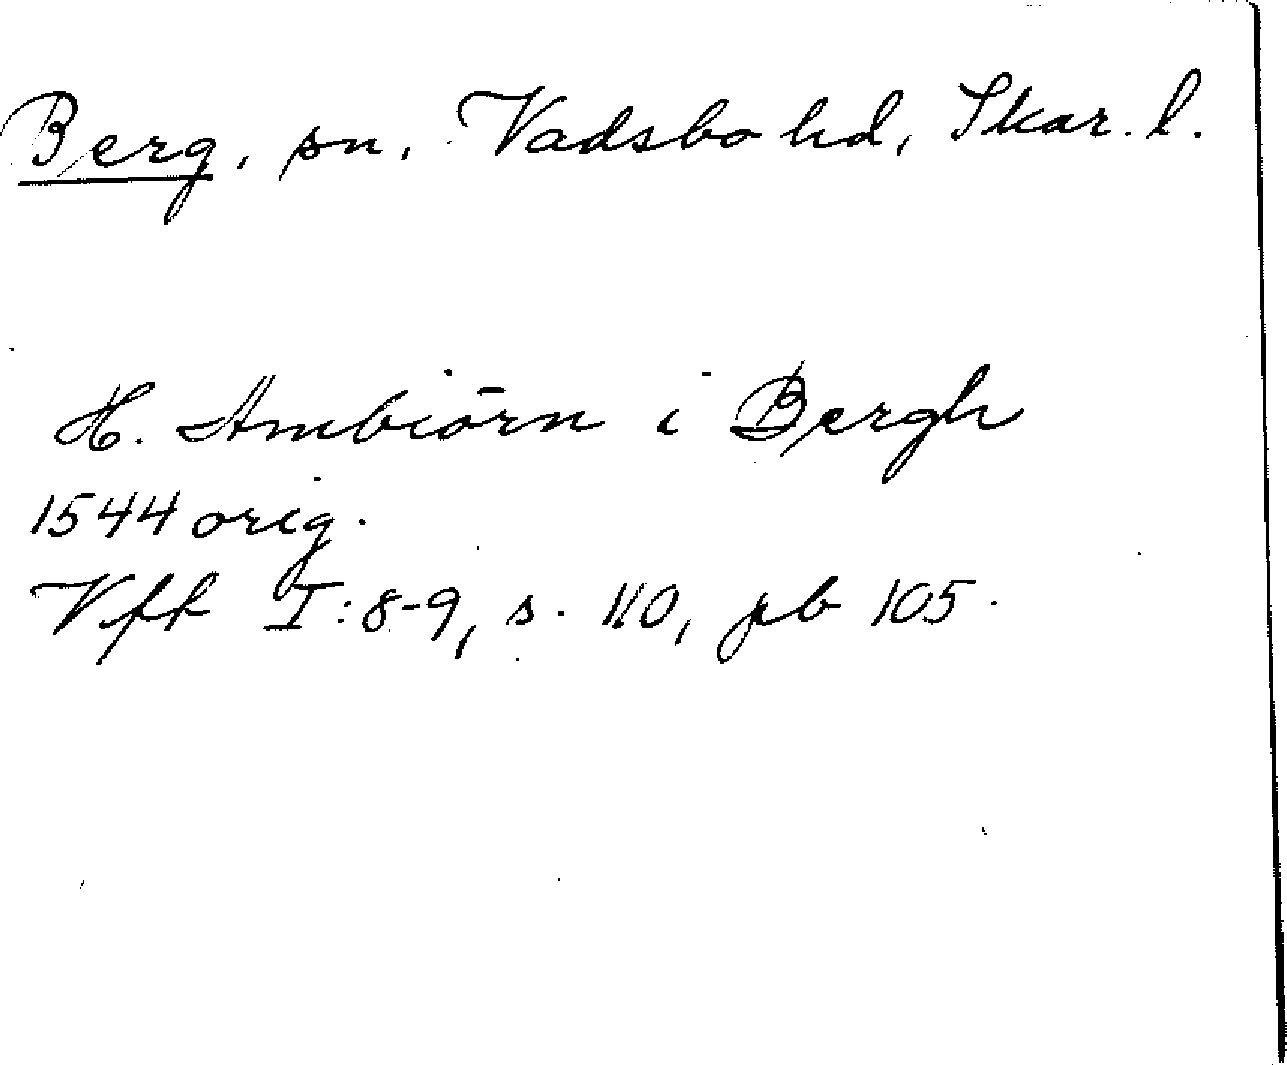 Berg, sn, Vadsbo hd, Skar. l.
H. Ambiörn i Bergh
1544 orig.
Vft I:8-9, s. 110, pb 105.